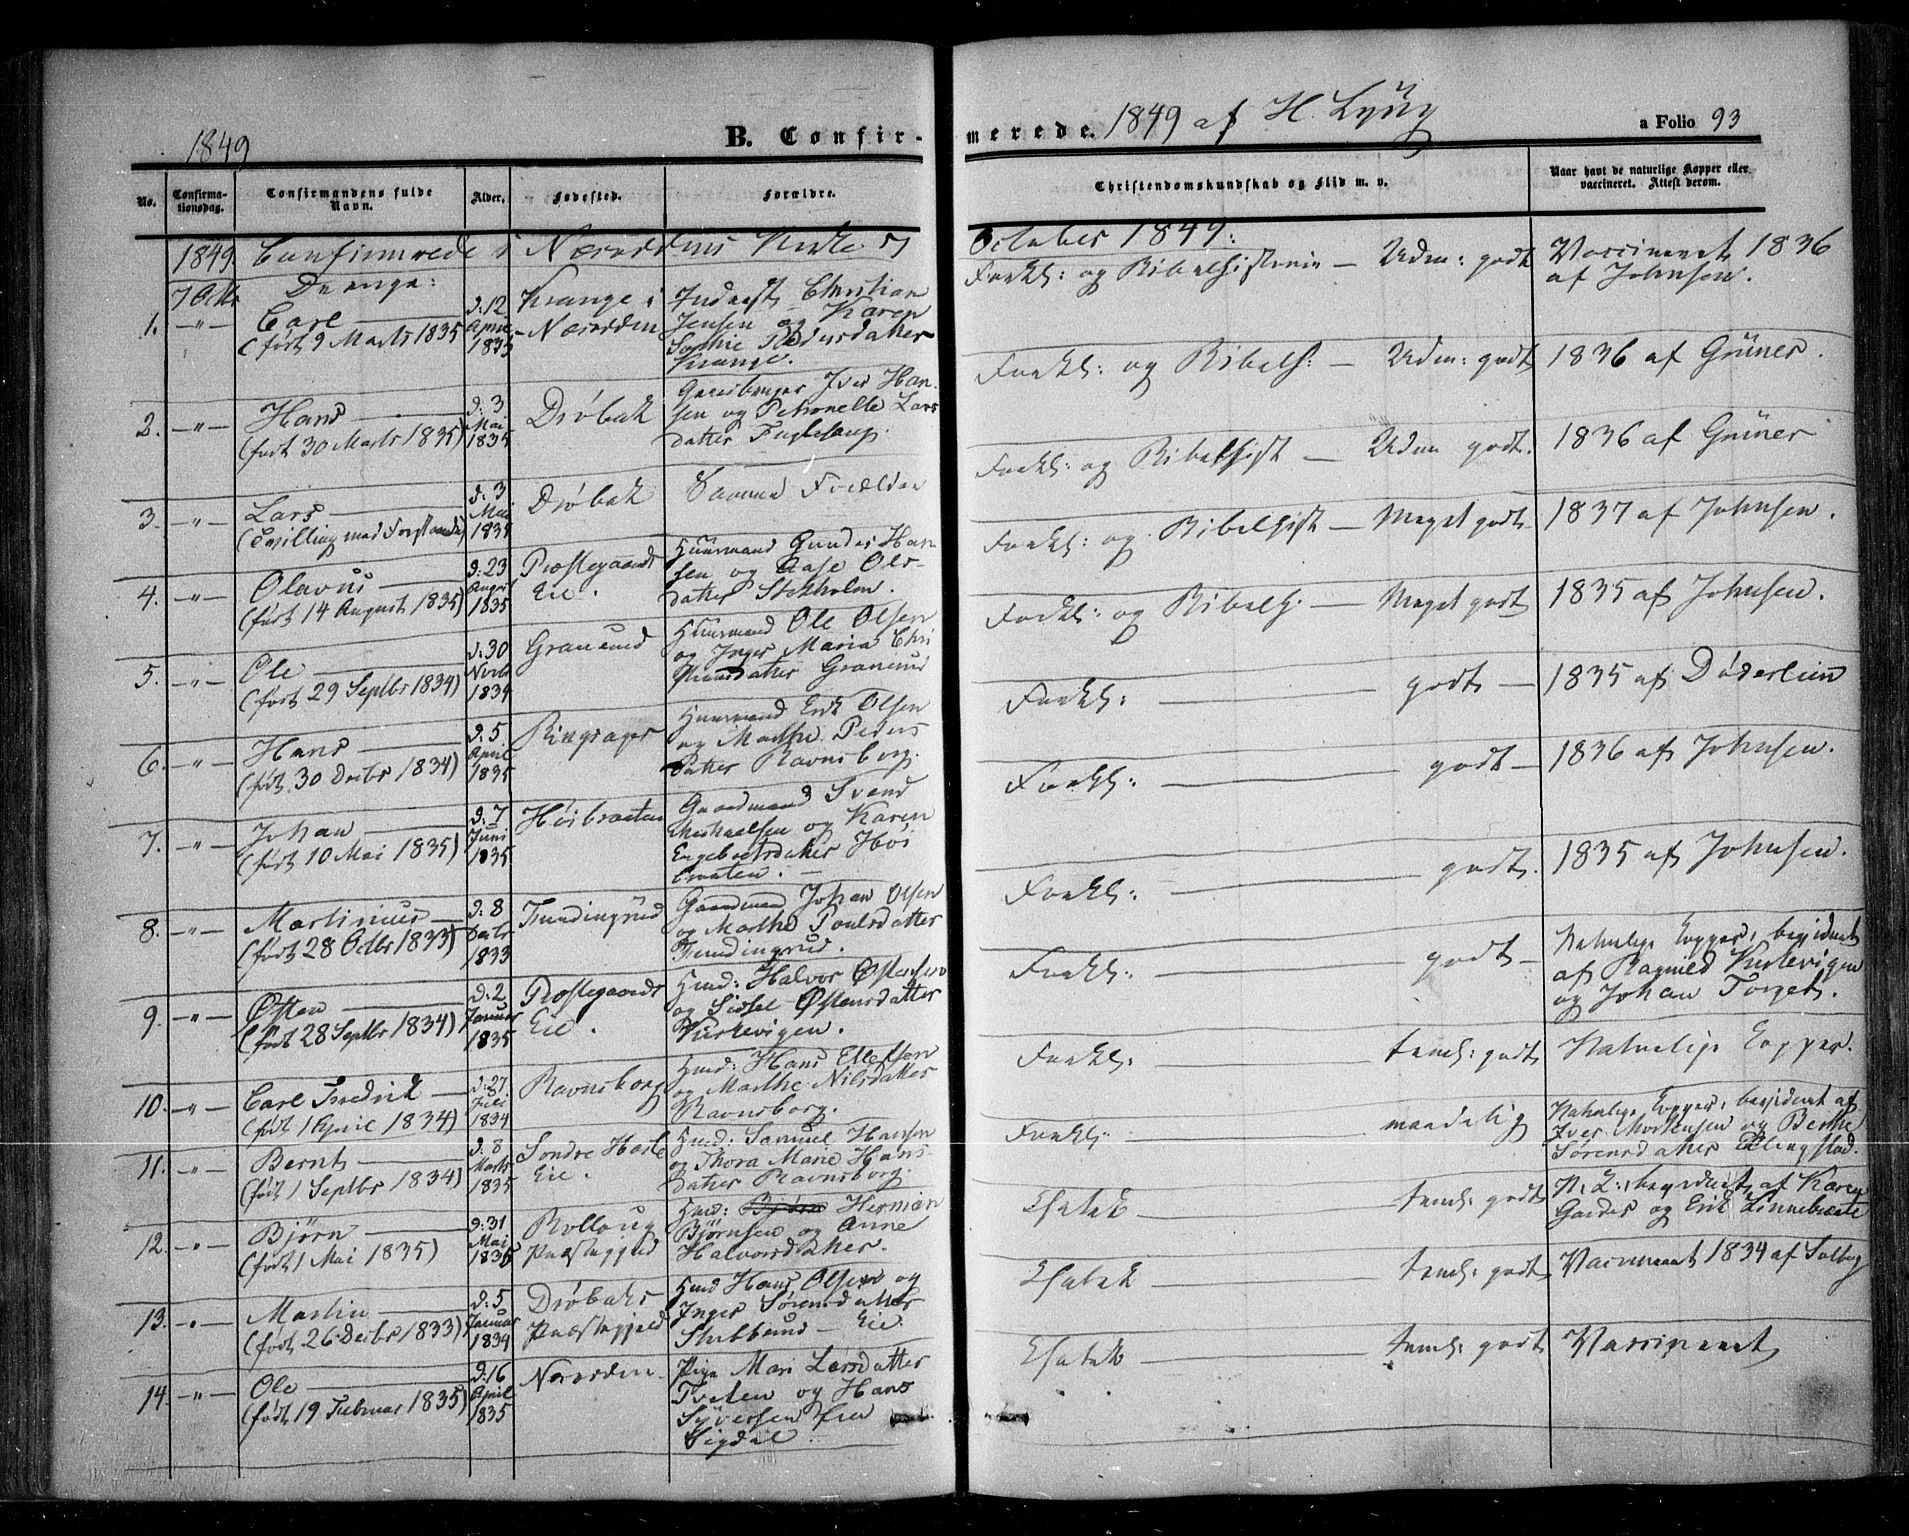 1849
B. Confir-
merede. 1849 af H. Lyng
a Folio 93
No.
Confirma-
tionsdag.
Confirmandens fulde
Navn.
Alder.
Fødested.
Forældre.
Christendomskundskab og Flid m. v.
Naar havt de naturlige Kopper eller
vaccineret. Attest derom.
1849. Confirmerede i Næsoddens Kirke 7
October 1849:
7 Octbr Drenge:
1. -"- Carl
(født 9 Marts 1835)
d: 12
April
1835
Krange i
Næsodden
Christian
Jensen og Karen
Sophie Pedersdatter
Krange.
Forkl: og Bibelhistorie — Udm: godt
Vaccineret 1836
af Johnsen.
2. -"- Hans
(født 30 Marts 1835)
d: 3
Mai
1835
Drøbak
Iver Han-
sen og Petronelle Lars
datter
Forkl: og Bibelh: — Udm: godt
1836 af Grüner.
3. -"- Lars
(Tvilling med Forestaaende)
d: 3
Mai
1835
Drøbak
Samme Forældre
Forkl: og Bibelhist — Udm godt.
1836 af Grüner
4. -"- Olavus
(født 14 August 1835)
d: 23
August
1835
Præstegaards
Eie.
Huusmand Gunder Han
sen og Aase Ols-
datter Stokholm.
Forkl: og Bibelhist — Meget godt
1837 af Johnsen.
5. -"- Ole
(født 29 Septbr 1834)
d: 30
Novb
1834
Granerud
Huusmand Ole Olsen
og Inger Maria Chri
stiansdatter Granerud
Forkl: og Bibelh: — Meget godt
1835 af Johnsen.
6. -"- Hans
(født 30 Decbr 1834)
d: 5
April
1835
Ringsager
Huusmand Erik Olsen
og Marthe Peders
datter Ravnsborg.
Forkl: — godt —
1835 af Døderlein
7. -"- Johan
(født 10 Mai 1835)
d: 7
Juni
1835
Høibraaten
Gaardmand Svend
Michaelsen og Karen
Engebretsdatter Høi
braaten. —
Forkl: — godt —
1836 af Johnsen.
8. -"- Martinius
(født 28 Octbr 1833)
d: 8
Decbr
1833
Gaardmand Johan Olsen
og Marthe Poulsdatter
Forkl: — godt.
1835 af Johnsen.
9. -"- Østen
(født 28 Septbr 1834)
d: 2
Januar
1835
Præstegaards
Eie.
Hmd: Halvor Østensen
og Sidsel Østensdatter
Kirkevigen.
Forkl: — godt —
Naturlige Kopper, bevidnet
af Ragnild Kirkevigen
og Johan Torgers.
10. -"- Carl Fredrik
(født 1 April 1834)
d: 27
Juli
1834
Ravnsborg
Hmd: Hans Ellefsen
og Marthe Nilsdatter
Ravnsborg.
Forkl: — teml: godt
Naturlige Kopper.
11. -"- Bernt
(født 1 Septbr 1834)
d: 8
Marts
1835
Søndre
Eie.
Hmd: Samuel Hansen
og Thora Marie Hans
datter Ravnsborg.
Forkl: — maadelig
Naturlige Kopper, bevidnet af
Iver Mortensen og Berthe
Sørensdatter Ellingstad.
12. -"- Bjørn
(født 1 Mai 1835)
d: 31
Mai
1835
Rollaug
Præstegjeld
Hmd: Bjørn Herman
Bjørnsen og Anne
Halvorsdatter.
Elatak — teml: godt
N. L: bevidnet af Karen
og Erik Linnebraate
13. -"- Martin
(født 26 Decbr 1833)
d: 5
Januar
1834
Drøbaks
Præstegjeld
Hmd Hans Olsen og
Inger Sørensdatter
Stubberud — Eie
— teml: godt
Vaccineret 1834 af Solberg
14 -"- Ole
(født 19 Februar 1835)
d: 16
April
1835
Næsodden
Pige Mari Larsdatter
Tveten og Hans
Syversen fra
Sigdal
— teml: godt
Vaccineret